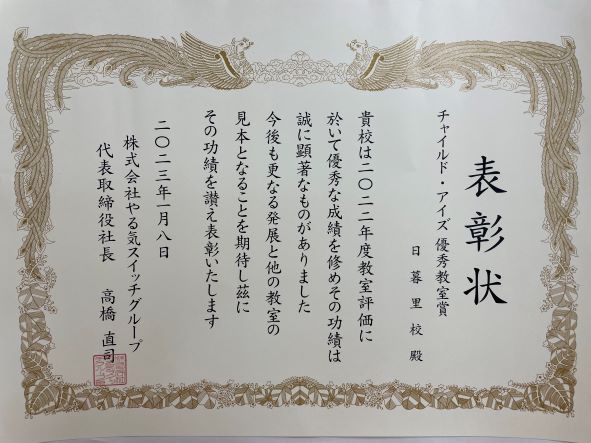 表彰状
チャイルド・アイズ 優秀教室賞
日暮里校 殿
貴校は二〇二二年度教室評価に
於いて優秀な成績を修めその功績は
誠に顕著なものがありました
今後も更なる発展と他の教室の
見本となることを期待し茲に
その功績を讃え表彰いたします
二〇二三年一月八日
株式会社やる気スイッチグループ
代表取締役社長 高橋 直司